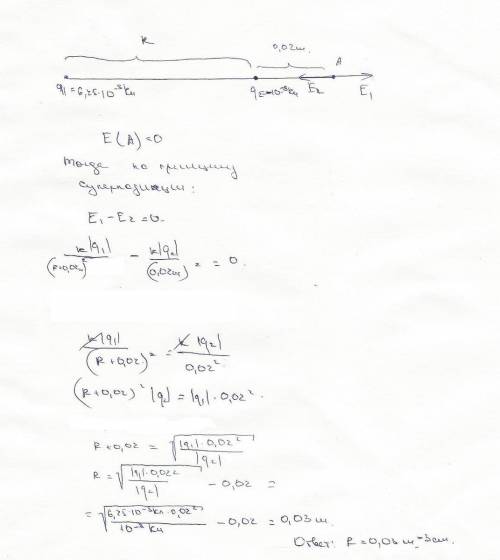 R 0,02м. A
q₁=6,25·10⁻⁸Кл q₂=-10⁻⁸Кл E₂ E₁
E(A)=0
тогда по принципу
суперпозиции:
E₁-E₂=0.
k|q₁|/(R+0,02м)² - k|q₂|/(0,02м)² = 0.
k|q₁|/(R+0,02)² = k|q₂|/0,02²
(R+0,02)²|q₂|=|q₁|·0,02².
R+0,02 = √(|q₁|·0,02²/|q₂|)
R = √(|q₁|·0,02²/|q₂|) - 0,02 =
= √(6,25·10⁻⁸Кл·0,02²/10⁻⁸Кл) - 0,02 = 0,03м.
Ответ: R=0,03м=3см.